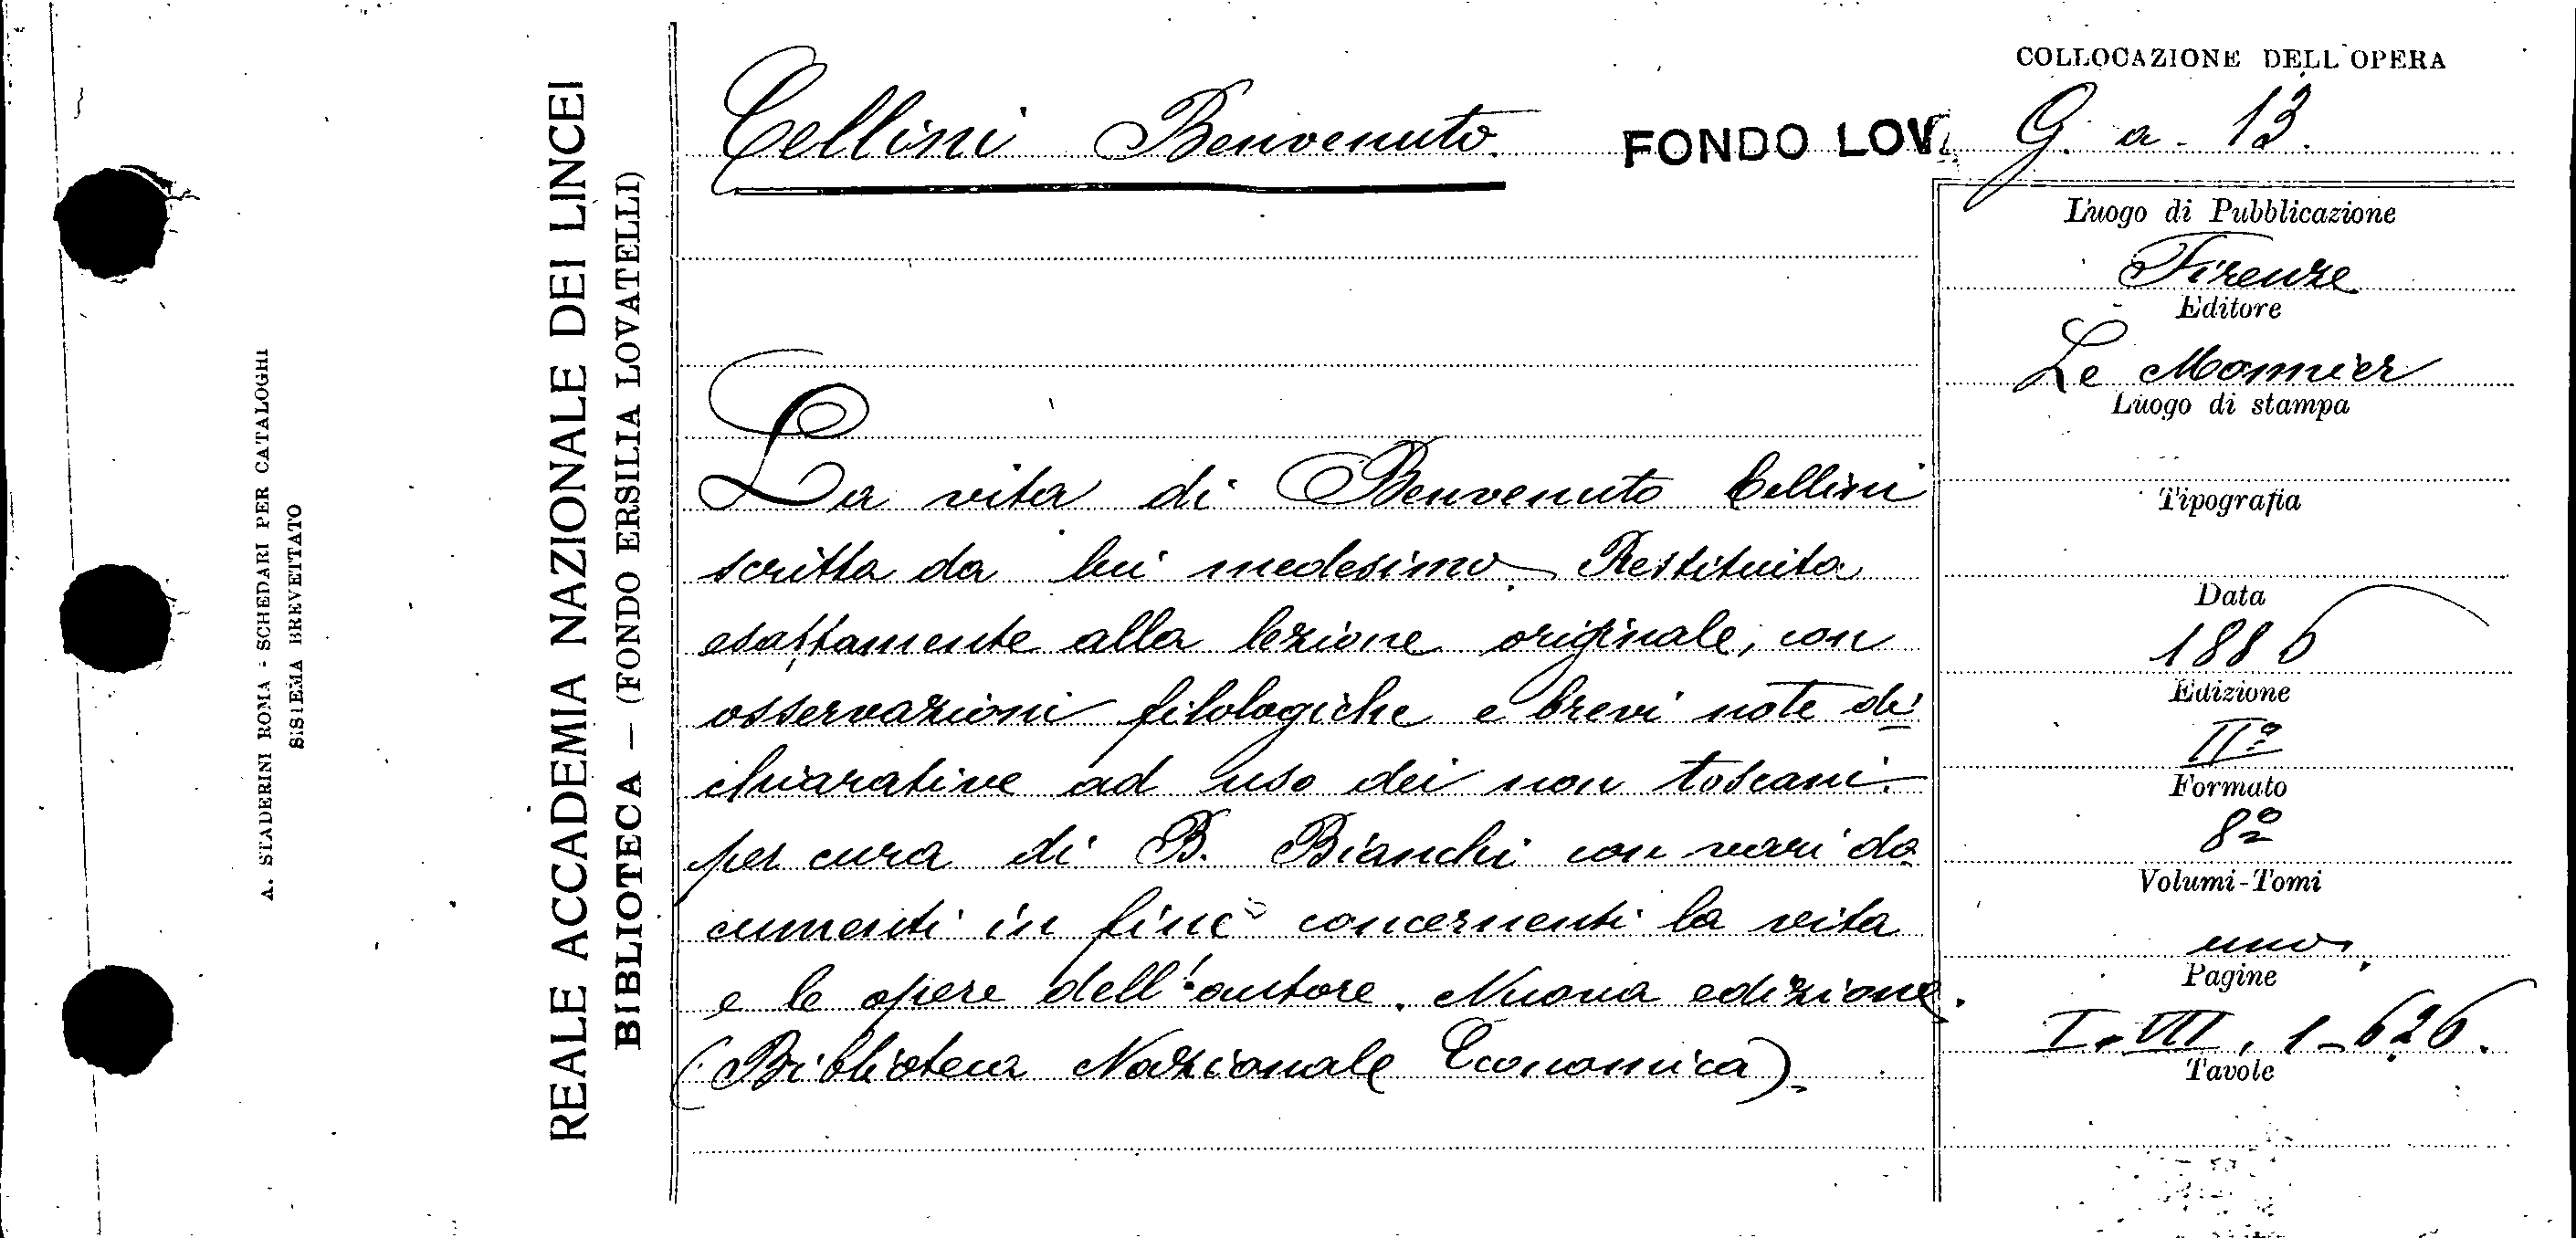 A. STADERINI ROMA - SCHEDARI PER CATALOGHI
SISTEMA BREVETTATO
REALE ACCADEMIA NAZIONALE DEI LINCEI
BIBLIOTECA — (FONDO ERSILIA LOVATELLI)
COLLOCAZIONE DELL'OPERA
Cellini Benvenuto.
FONDO LOV. G. a. 13.
La vita di Benvenuto Cellini
scritta da lui medesimo. Restituita
esattamente alla lezione originale, con
osservazioni filologiche e brevi note di
chiarative ad uso dei non toscani.
per cura di B. Bianchi con vari do
cumenti in fine concernenti la vita
e le opere dell'autore. Nuova edizione.
(Biblioteca Nazionale Economica).
Luogo di Pubblicazione
Firenze
Editore
Le Monnier
Luogo di stampa
Tipografia
Data
1886
Edizione
IIª
Formato
8º
Volumi-Tomi
uno.
Pagine
I-VII, 1-626.
Tavole